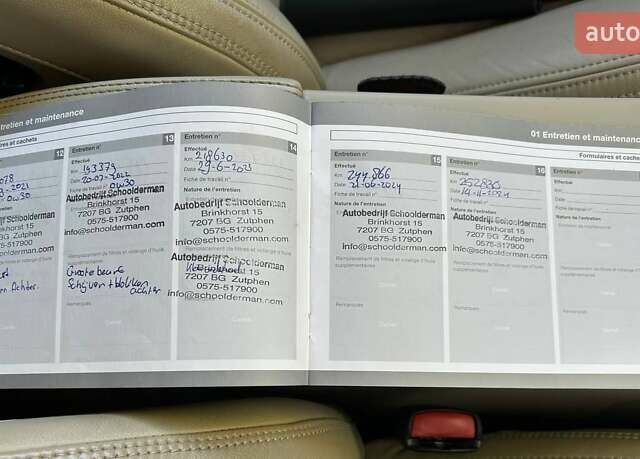 auto
ntretien et maintenance
01 Entretien et maintenance
ires et cachets
Formulaires et cachets
12
Entretien n° 13
Effectué
Km 193379
Date 20-07-2022
Fiche de travail n° 0W30
Autobedrijf Schoolderman
Brinkhorst 15
7207 BG Zutphen
0575-517900
info@schoolderman.com
Grote beurt
achter
Remarques
Cachet
Entretien n° 14
Effectué
Km 218630
Date 29-6-2023
Fiche de travail n°
Nature de l'entretien
Autobedrijf Schoolderman
Brinkhorst 15
7207 BG Zutphen
0575-517900
info@schoolderman.com
Remplacement de filtres et vidange d'huile
supplémentaires
Autobedrijf Schoolderman
Brinkhorst 15
7207 BG Zutphen
0575-517900
info@schoolderman.com
Remarques
Cachet
Entretien n° 15
Effectué
Km 244.866
Date 21-06-2024
Fiche de travail n°
Nature de l'entretien
Autobedrijf Schoolderman
Brinkhorst 15
7207 BG Zutphen
0575-517900
info@schoolderman.com
Remplacement de filtres et vidange d'huile
supplémentaires
Remarques
Cachet
Entretien n° 16
Effectué
Km 252830
Date 14-11-2024
Fiche de travail n°
Nature de l'entretien
Autobedrijf Schoolderman
Brinkhorst 15
7207 BG Zutphen
0575-517900
info@schoolderman.com
Remplacement de filtres et vidange d'huile
supplémentaires
Remarques
Cachet
Entretien n°
Effectué
Km
Date
Fiche de travail n°
Nature de l'entretien
Remplacement de filtres
supplémentaires
Remarques